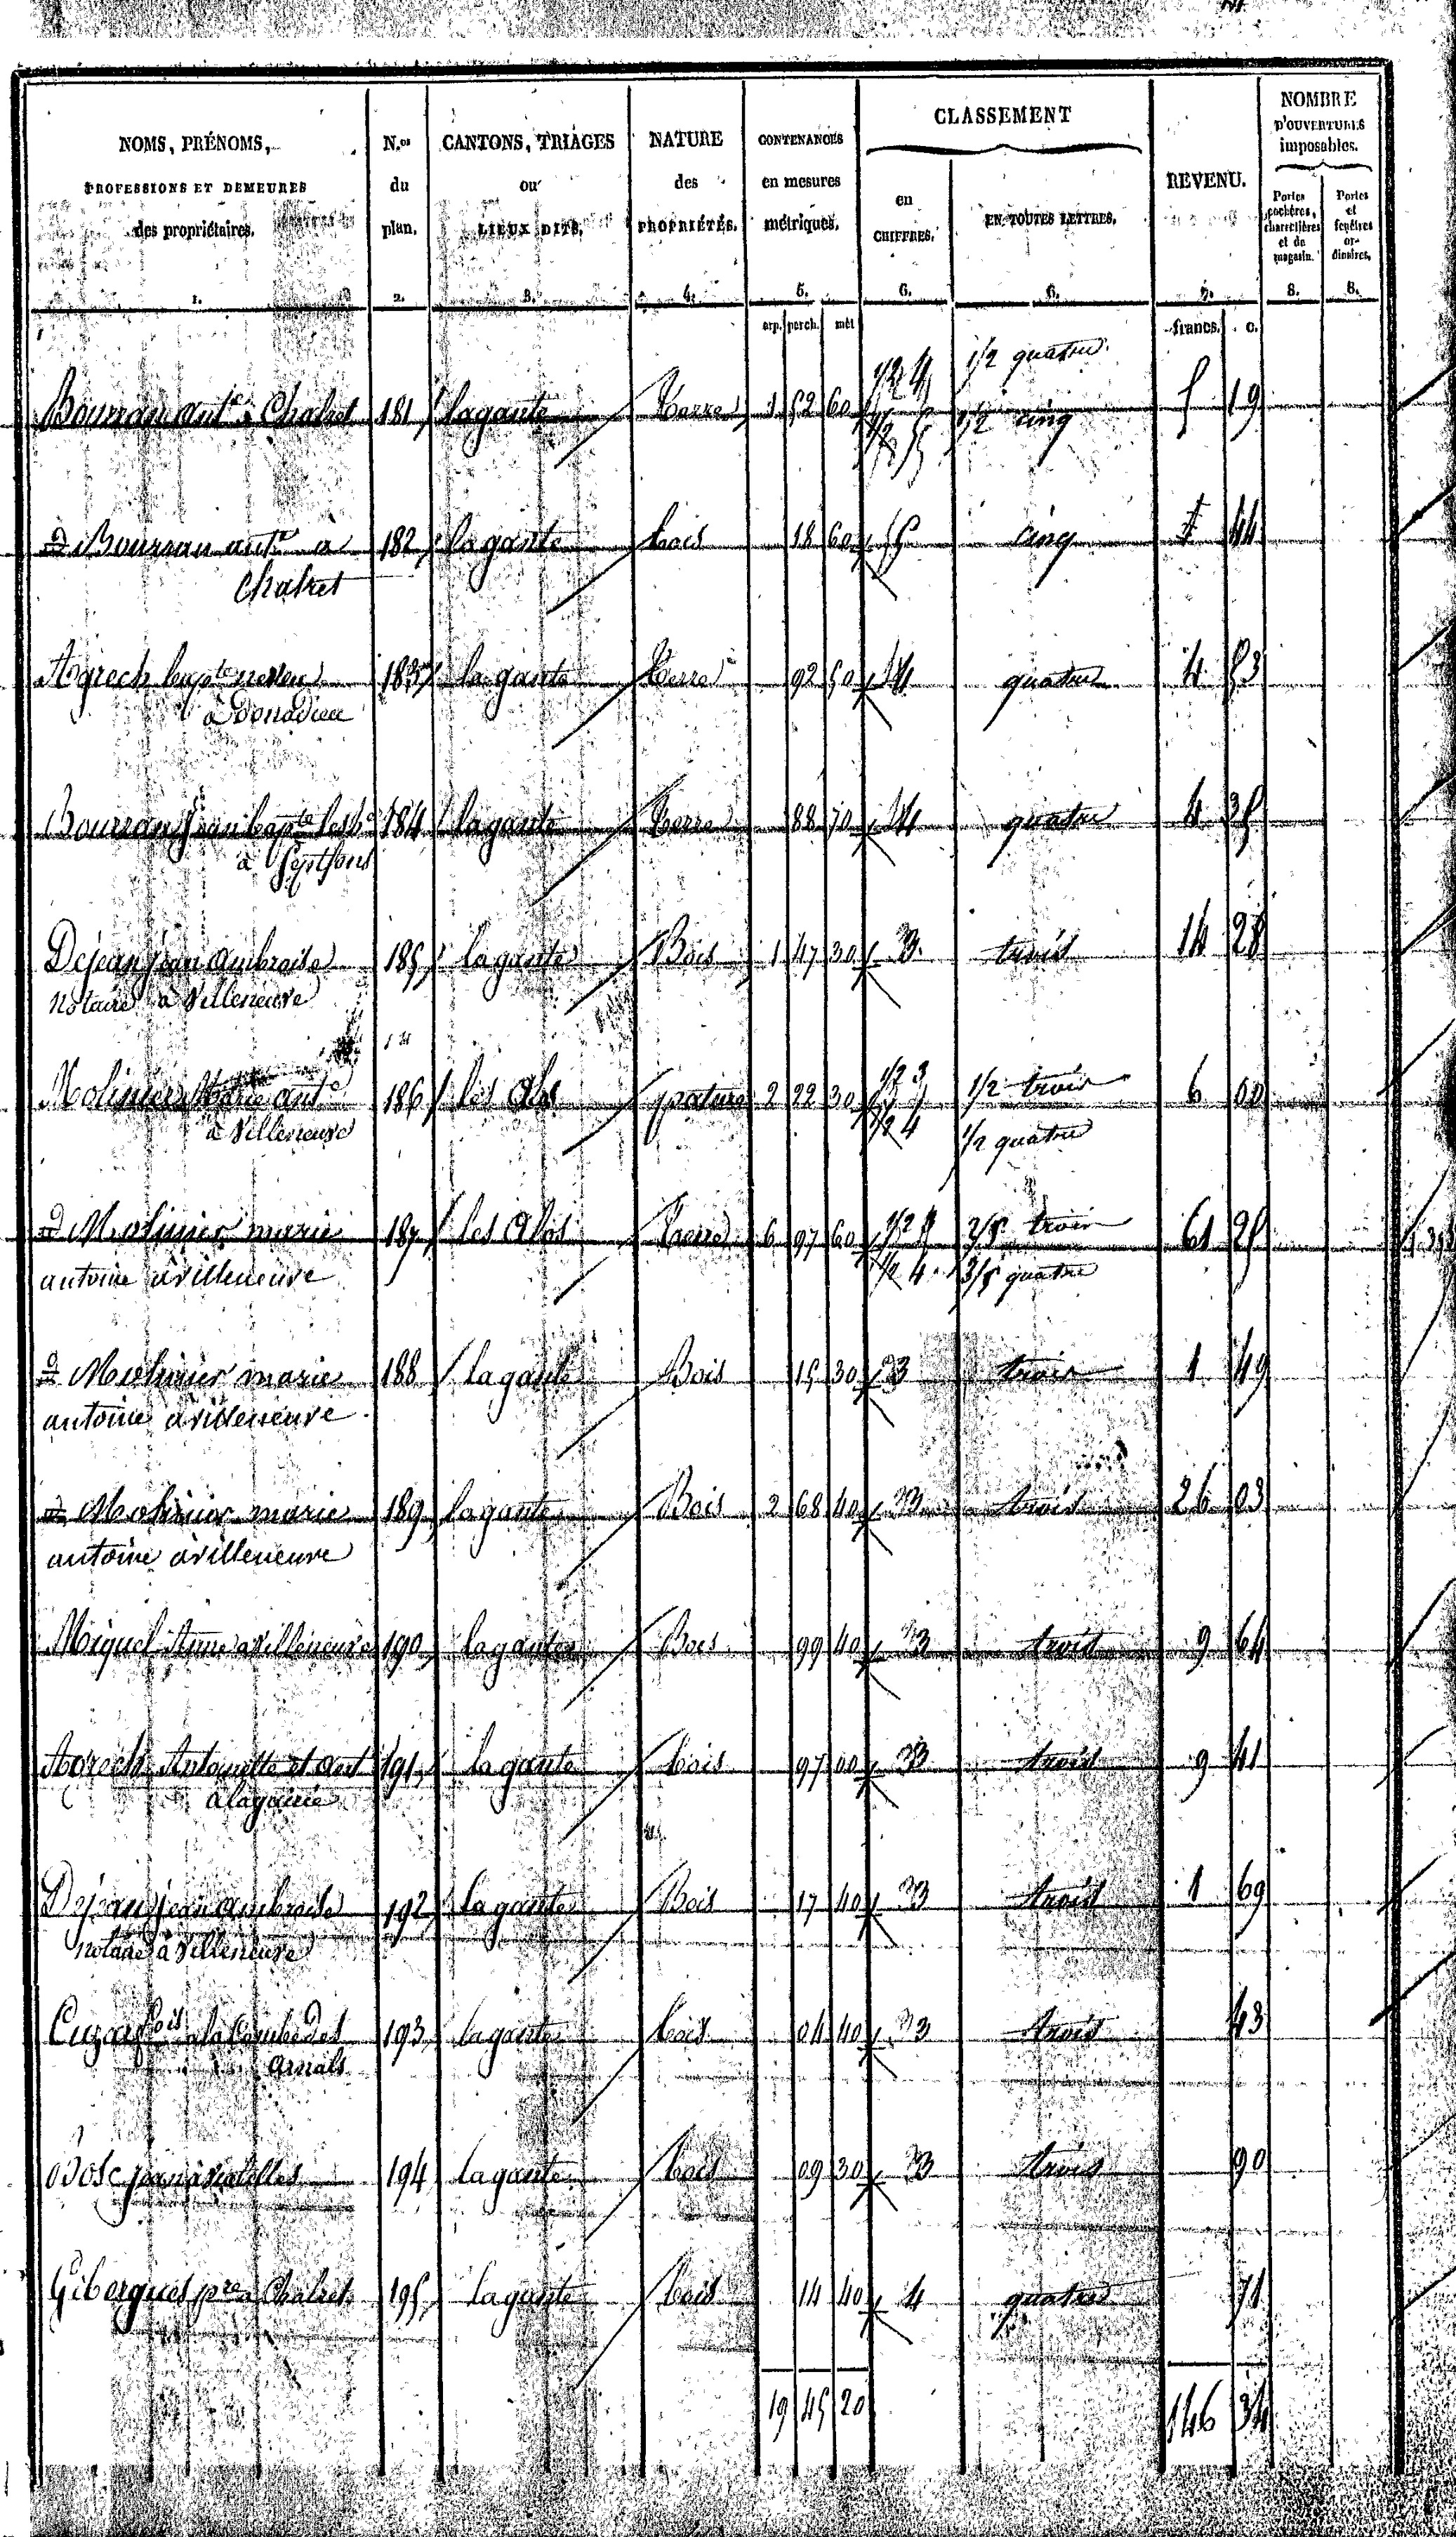 NOMS, PRÉNOMS, PROFESSIONS ET DEMEURES des propriétaires. 1.
N.os du plan. 2.
CANTONS, TRIAGES ou LIEUX DITS. 3.
NATURE des PROPRIÉTÉS. 4.
CONTENANCES en mesures métriques. 5.
CLASSEMENT
en CHIFFRES. 6.
EN TOUTES LETTRES. 6.
REVENU. 7.
NOMBRE D'OUVERTURES imposables.
Portes cochères, charretières et de magasin. 8.
Portes et fenêtres ordinaires. 8.
arp. perch. mèt francs. c.
1/2 4 1/2 quatre
Bourran ant.e à Chalret 181 lagante Terre 1 52 60 1/2 5 1/2 cinq 5 19
d Bourran ant.e à 182 lagante bois 18 60 5 cinq 44
Chalret
Agrech bap.te neveu 183 lagante Terre 92 50 4 quatre 4 53
à Donadieu
Bourran Jean bap.te 184 lagante Terre 88 70 4 quatre 4 35
à Septfons
Dejean jean ambroise 185 lagante Bois 1 47 30 3 trois 14 28
notaire à Villeneuve
Molinier Marie ant.e 186 les Alos pature 2 22 30 1/2 3 1/2 trois 6 00
à Villeneuve 1/2 4 1/2 quatre
d Molinier marie 187 les Alos Terre 6 97 60 1/2 trois 61 25
antoine à villeneuve 1/2 4 quatre
d Molinier marie 188 lagante Bois 15 30 3 trois 1 49
antoine à villeneuve
d Molinier marie 189 lagante Bois 2 68 40 3 trois 26 03
antoine à villeneuve
Miquel Anne a villeneuve 190 lagante Bois 99 40 3 trois 9 64
Agrech Antoinette et ant 191 lagante bois 97 00 3 trois 9 41
à laganie
Dejean jean ambroise 192 lagante Bois 17 40 3 trois 1 69
notaire à Villeneuve
Cuzay f.ois a la Combe des 193 lagante bois 04 40 3 trois 43
arnals
Bosc jean à 194 lagante bois 09 30 3 trois 90
Gibergues p.re a Chalret 195 lagante bois 14 40 4 quatre 71
19 45 20 146 34